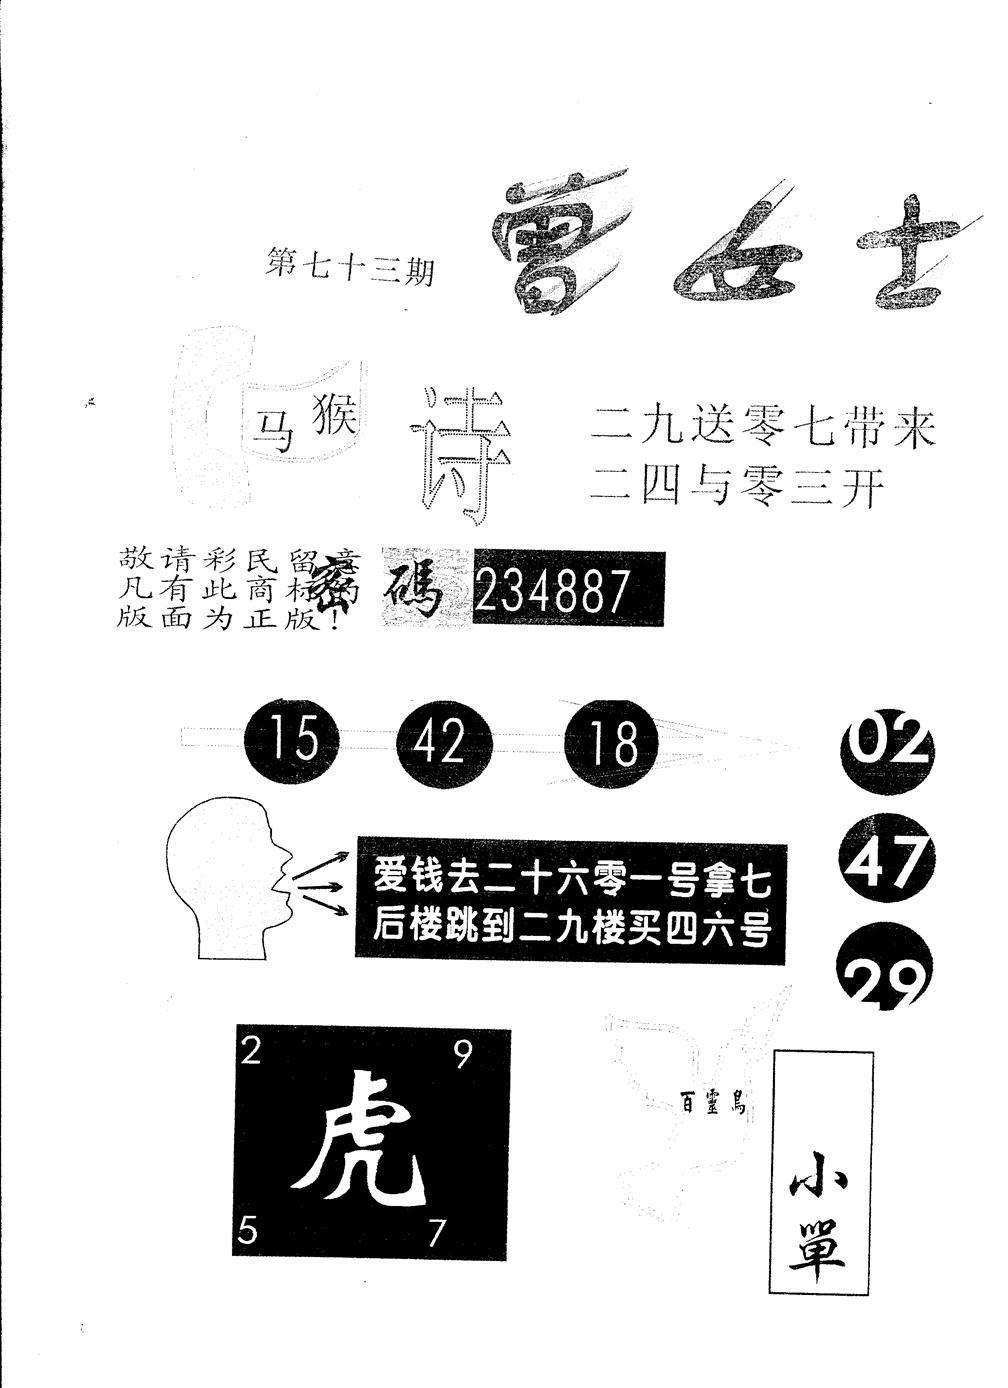 曾女士
第七十三期
马 猴
诗
二九送零七带来
二四与零三开
敬请彩民留意
凡有此商标的
版面为正版！
密碼
234887
15 42 18
02
47
29
爱钱去二十六零一号拿七
后楼跳到二九楼买四六号
2 9
虎
5 7
百靈鳥
小單